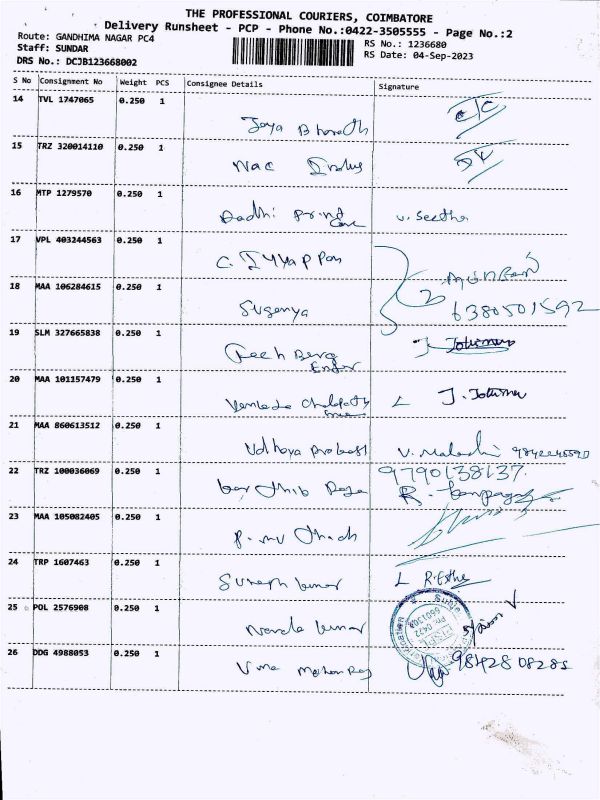 THE PROFESSIONAL COURIERS, COIMBATORE
Delivery Runsheet - PCP - Phone No.:0422-3505555 - Page No.:2
Route: GANDHIMA NAGAR PC4
RS No.: 1236680
Staff: SUNDAR
RS Date: 04-Sep-2023
DRS No.: DCJB123668002
S No Consignment No Weight PCS Consignee Details Signature
14 TVL 1747065 0.250 1
Jaya Bharath
15 TRZ 320014110 0.250 1
Nac
16 MTP 1279570 0.250 1
Dadhi Print Care V. Seetha
17 VPL 403244563 0.250 1
C. Iyyappan
18 MAA 106284615 0.250 1
2
6380501592
Suganya
19 SLM 327665838 0.250 1
Tech Berg
20 MAA 101157479 0.250 1
21 MAA 860613512 0.250 1
Udhaya
22 TRZ 100036069 0.250 1
9790138137
23 MAA 105082405 0.250 1
24 TRP 1607463 0.250 1
Suresh kumar
25 POL 2576908 0.250 1
Nanda kumar
26 DDG 4988053 0.250 1
Uma Mohan Raj 98428 08285